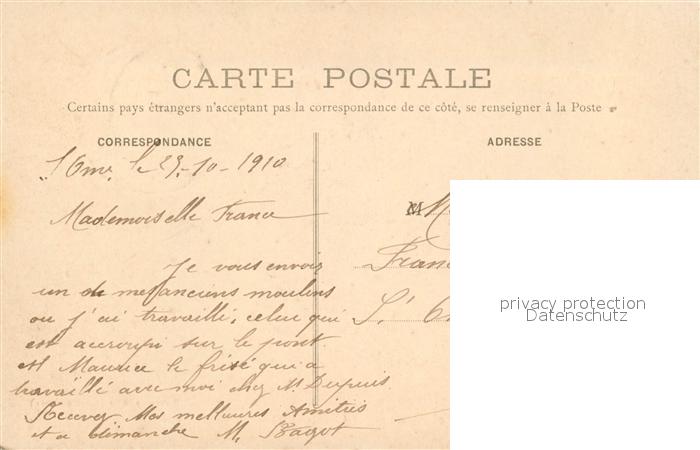 CARTE POSTALE
Certains pays étrangers n'acceptant pas la correspondance de ce côté, se renseigner à la Poste
CORRESPONDANCE
ADRESSE
le 23-10-1910
Mademoiselle France
Je vous envoie
un de mes anciens moulins
ou j'ai travaillé, celui qui
est accroupi sur le pont
est Maurice le frisé qui a
travaillé avec moi chez M Dupuis.
Recevez Mes meilleures Amitiés
et a dimanche M. Bagot
M
Fran
St
privacy protection
Datenschutz